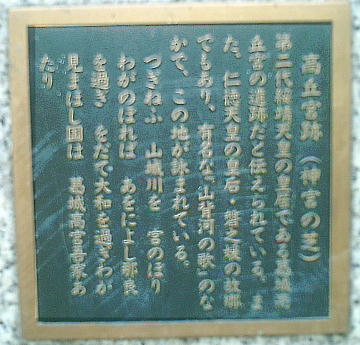 高丘宮跡（神宮の芝）
第二代綏靖天皇の皇居である葛城高
丘宮の遺跡だと伝えられている。ま
た、仁徳天皇の皇后・磐之媛の故郷
でもあり、有名な「山背河の歌」のな
かで、この地が詠まれている。
つぎねふ　山城川を　宮のぼり
わがのぼれば　あをによし那良
を過ぎ　をだて大和を過ぎわが
見まほし国は　葛城高宮吾家あ
たり